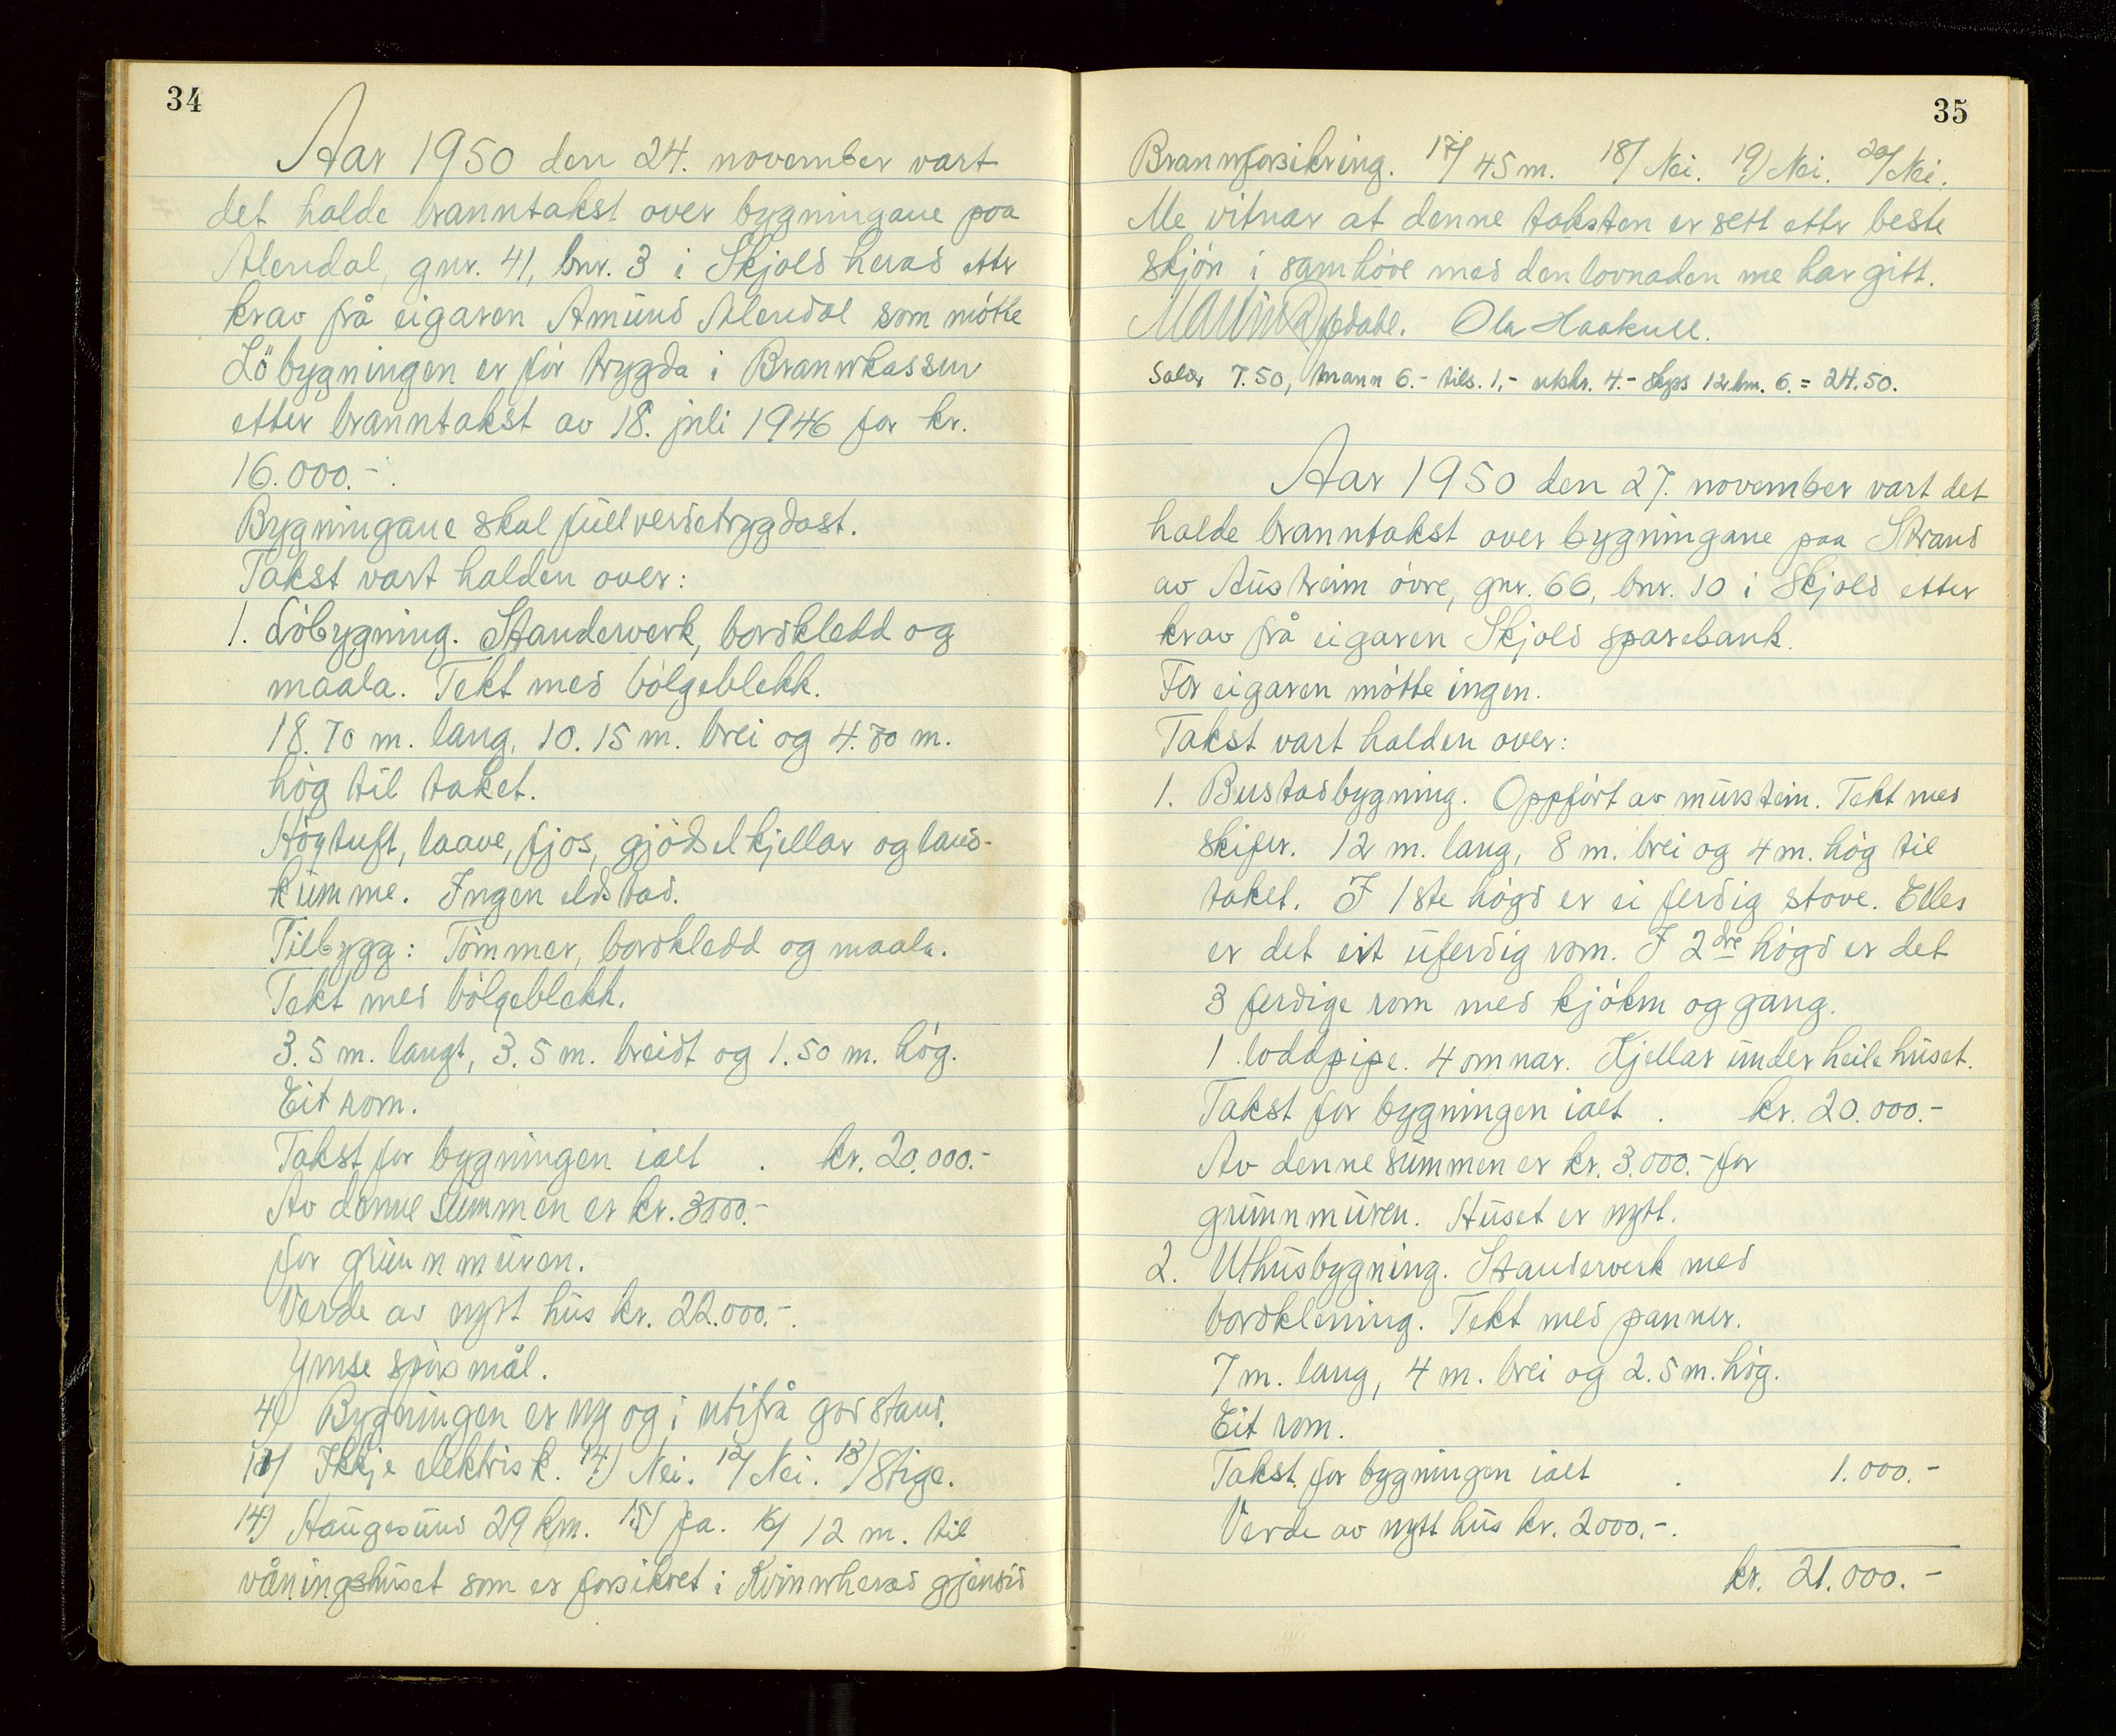 34
Aar 1950 den 24. november vart
det halde branntakst over bygningane paa
Alendal, gnr. 41, bnr. 3 i Skjold herad ettr
krav frå eigaren Amund Alendal som møtte
Löbygningen er før trygda i Brannkassen
etter branntakst av 18. juli 1946 for kr.
16.000.-.
Bygningane skal fullverdetryggdast.
Takst vart halden over:
1. Løbygning. Standerverk, bordkledd og
maala. Tekt med bølgeblekk.
18.70 m. lang, 10.15 m. brei og 4.80 m.
høg til taket.
Høgtuft, laave, fjos, gjødselkjellar og land-
kumme. Ingen eldstad.
Tilbygg: Tømmer, bordkledd og maala.
Tekt med bølgeblekk.
3.5 m. langt, 3.5 m. breidt og 1.50 m. høg.
Eit rom.
Takst for bygningen ialt . kr. 20.000.-
Av denne summen er kr. 3000.-
for grunnmuren.
Verde av nytt hus kr. 22.000.-.
Ymse spörsmål.
4) Bygningen er ny og i utifrå god stand.
10) Ikkje elektrisk. 11) Nei. 12) Nei. 13) Stige.
14) Haugesund 29 km. 15) Ja. 16) 12 m. til
våningshuset som er forsikret i Kvinnherad gjensid
35
Brannforsikring. 17) 45 m. 18) Nei. 19) Nei. 20) Nei.
Me vitnar at denne taksten er sett ettr beste
skjøn i samhøve med den lovnaden me har gitt.
Ola Haakull.
Salær 7.50, mann 6.- tils. 1,- utskr. 4.- skyss 12 km. 6. = 24.50.
Aar 1950 den 27. november vart det
halde branntakst over bygningane paa Strand
av Austreim øvre, gnr. 66, bnr. 10 i Skjold etter
krav frå eigaren Skjold sparebank.
For eigaren møtte ingen.
Takst vart halden over:
1. Bustadbygning. Oppført av murstein. Tekt med
skifer. 12 m. lang, 8 m. brei og 4 m. høg til
taket. I 1ste høgd er ei ferdig stove. Elles
er det eit uferdig rom. I 2dre høgd er det
3 ferdige rom med kjøken og gang.
1 loddpipe. 4 omnar. Kjellar under heile huset.
Takst for bygningen ialt . kr. 20.000.-
Av denne summen er kr. 3.000.- for
grunnmuren. Huset er nytt.
2. Uthusbygning. Standerverk med
bordklening. Tekt med panner.
7 m. lang, 4 m. brei og 2.5 m. høg.
Eit rom.
Takst for bygningen ialt . 1.000.-
Verde av nytt hus kr. 2000.-.
kr. 21.000.-